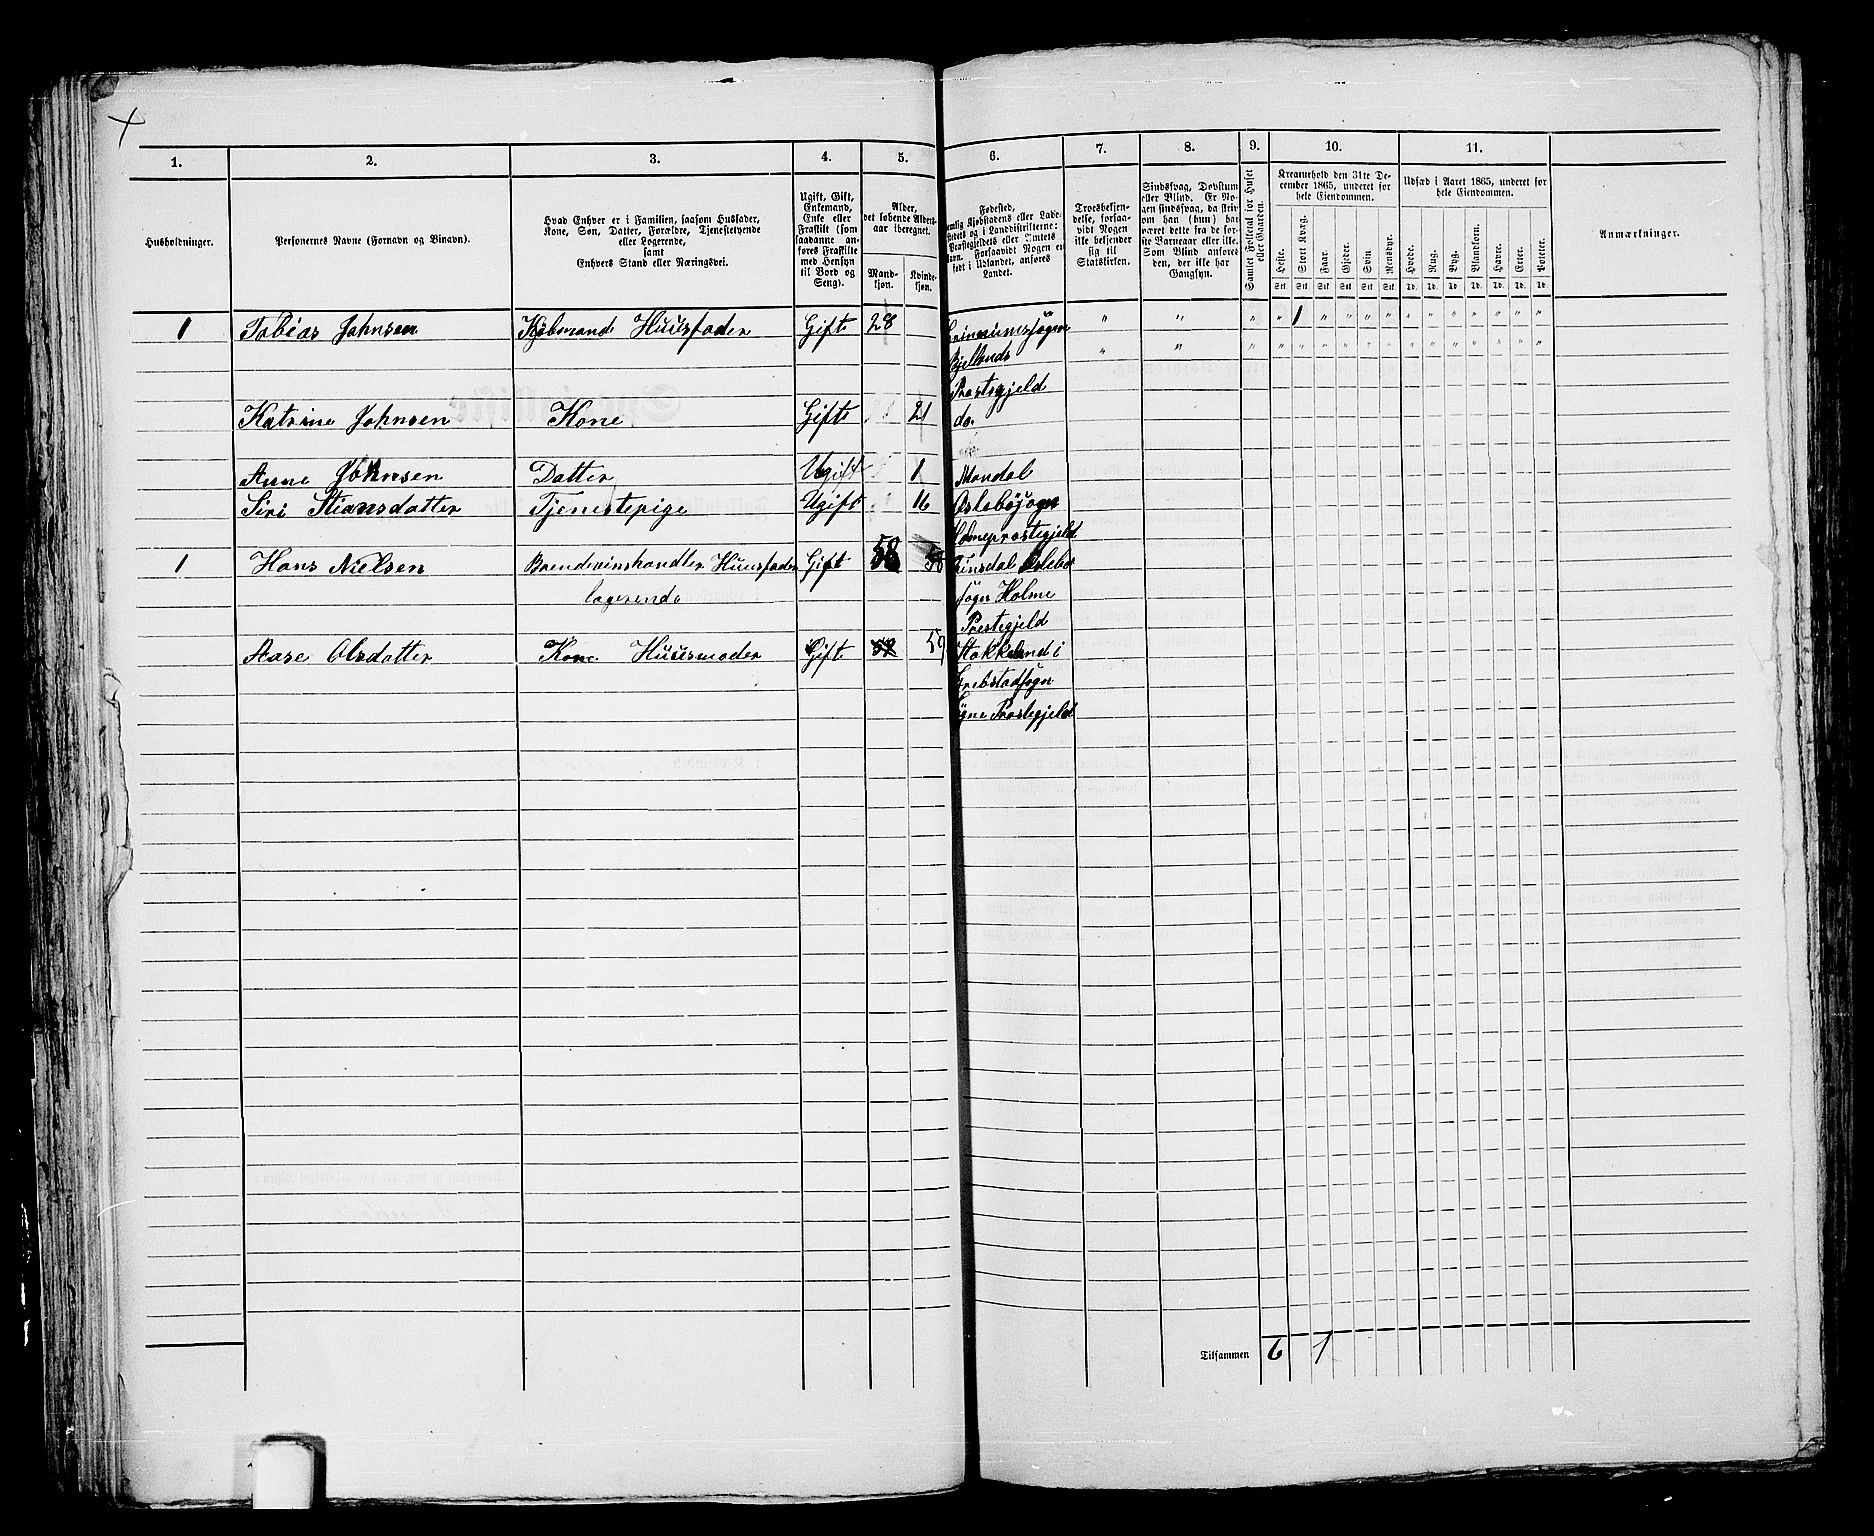 1. 2. 3. 4. 5. 6. 7. 8. 9. 10. 11.
Husholdninger.
Personernes Navne (Fornavn og Binavn).
Hvad Enhver er i Familien, saasom Husfader,
Kone, Søn, Datter, Forældre, Tjenestetyende
eller Logerende,
samt
Enhvers Stand eller Næringsvei.
Ugift, Gift,
Enkemand,
Enke eller
Fraskilt (som
saadanne an-
føres Fraskilte
med Hensyn
til Bord og
Seng).
Alder,
det løbende Alders-
aar iberegnet.
Mand-
kjøn.
Kvinde-
kjøn.
Fødested,
Kjøbstadens eller Lade-
stedets og i Landdistrikterne:
Præstegjeldets eller Amtets
Navn. Forsaavidt Nogen er
født i Udlandet, anføres
Landet.
Troesbekjen-
delse, forsaa-
vidt Nogen
ikke bekjender
sig til
Statskirken.
Sindssvag, Døvstum
eller Blind. Er No-
gen sindssvag, da skriv
om han (hun) har
været dette fra de før-
ste Barneaar eller ikke.
Som Blind anføres
den, der ikke har
Gangsyn.
Samlet Folketal for Huset
eller Gaarden.
Kreaturhold den 31te De-
cember 1865, underet for
hele Eiendommen.
Heste. Stort Kvæg. Faar. Gjeder. Svin. Rensdyr.
Stk Stk Stk Stk Stk Stk
Udsæd i Aaret 1865, underet for
hele Eiendommen.
Hvede. Rug. Byg. Blandkorn. Havre. Erter. Poteter.
Td. Td. Td. Td. Td. Td. Td.
Anmærkninger.
1 Tobias Johnsen Kjøbmand Huusfader Gift 28 " " " " 1 " " " " " " " " " " "
Bjellands " " " " " " " " " " " " " " " "
Præstegjeld
Katrine Johnsen Kone Gift 21 do.
Anne Johnsen Datter Ugift 1 Mandal
Siri Stiansdatter Tjenestepige Ugift 16 Øslebøsogn
Holmeprestegjeld
1 Hans Nielsen Brendevinshandler Huusfader Gift 58 58 Finsdal Øslebø
logerende sogn Holme
Prestegjeld
Aase Olsdatter Kone Huusmoder Gift 59 Stokkeland i
Grebstadsogn
Søgne Prestegjeld
Tilsammen 6 1